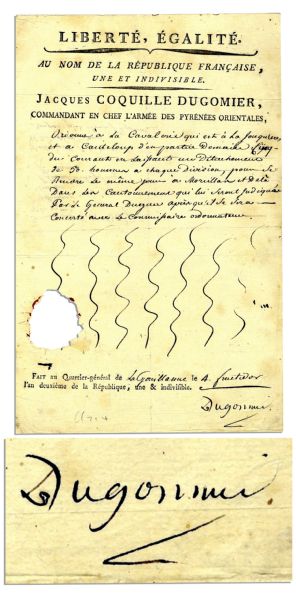 LIBERTÉ, ÉGALITÉ.
AU NOM DE LA RÉPUBLIQUE FRANÇAISE,
UNE ET INDIVISIBLE.
JACQUES COQUILLE DUGOMIER,
COMMANDANT EN CHEF L'ARMÉE DES PYRÉNÉES ORIENTALES,
à la Cavalerie qui est à la
et a d'en partir Domain
du Courant un Détachement
de 50. hommes a chaque Division, pour se
le même jour a et de là
Dans les Cantonnements qui lui Seront Indiqués
Par le General après qu'il Se Sera
Concerté avec le Commissaire ordonnateur
FAIT au Quartier-général de le 4. fructidor
l'an deuxième de la République, une & indivisible.
Dugommier
Dugommier